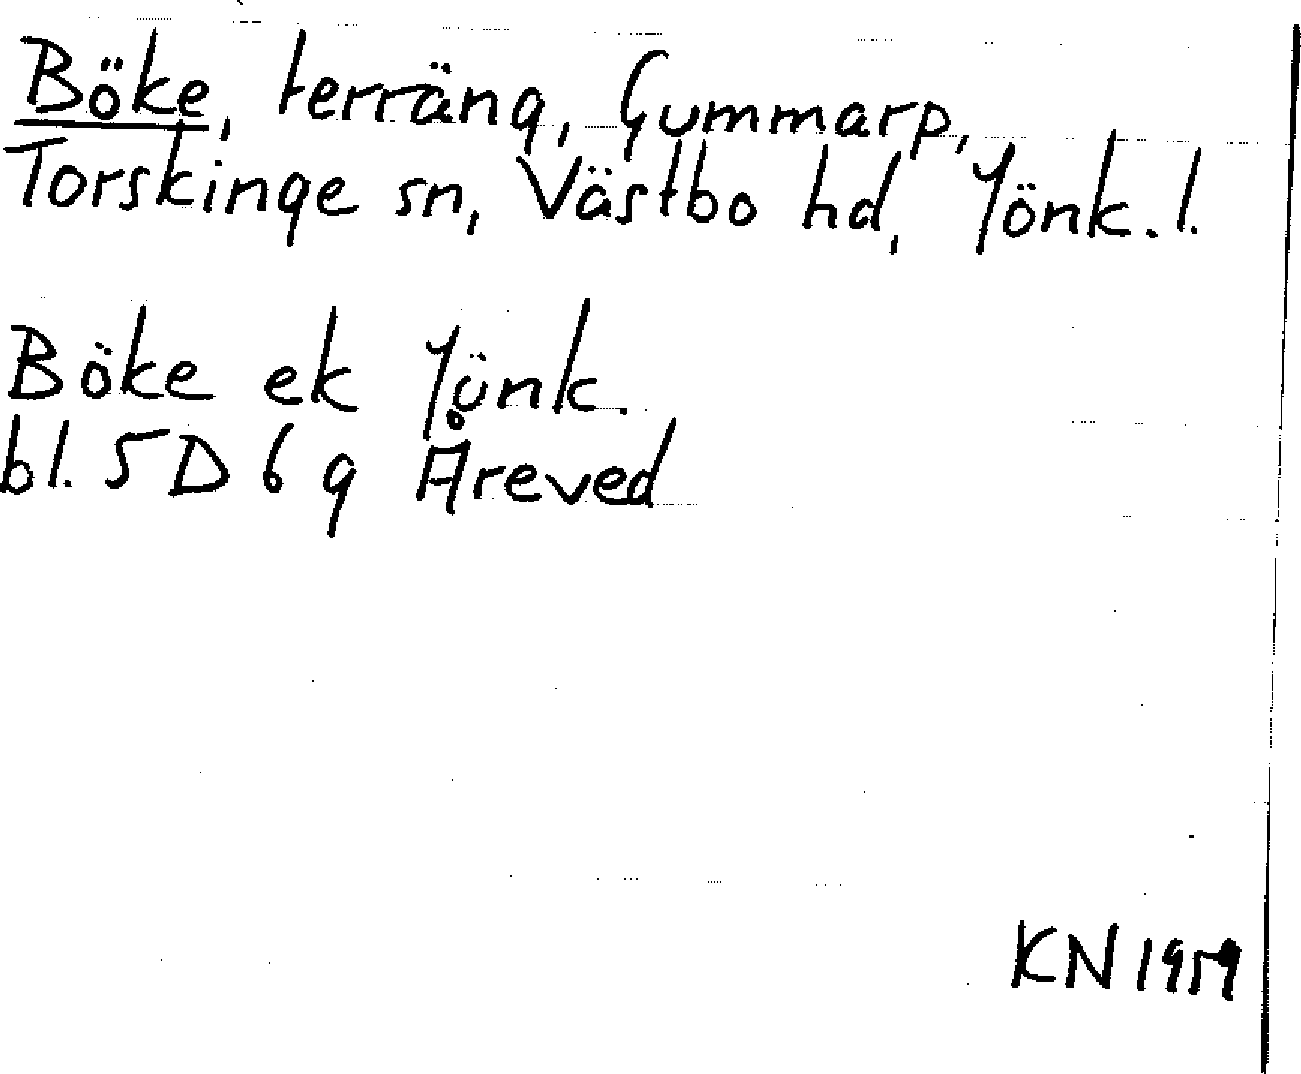 Böke, terräng, Gummarp,
Torskinge sn, Västbo hd, Jönk. l.
Böke ek Jönk.
bl. 5D 6 g Åreved
KN 1959